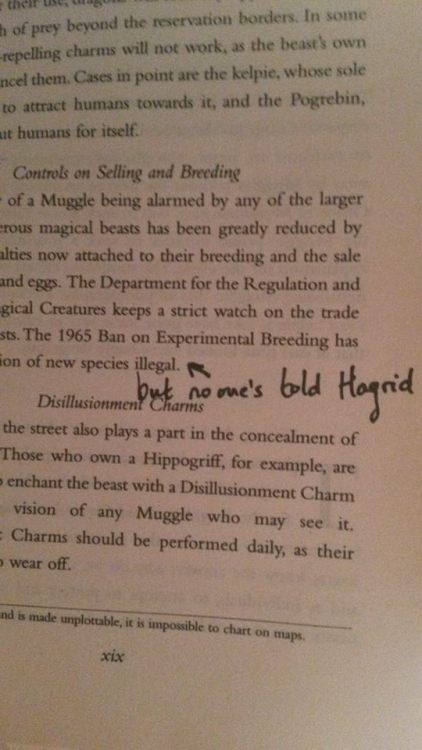 their use,
h of prey beyond the reservation borders. In some
-repelling charms will not work, as the beast's own
ncel them. Cases in point are the kelpie, whose sole
to attract humans towards it, and the Pogrebin,
ut humans for itself.
Controls on Selling and Breeding
of a Muggle being alarmed by any of the larger
erous magical beasts has been greatly reduced by
alties now attached to their breeding and the sale
and eggs. The Department for the Regulation and
gical Creatures keeps a strict watch on the trade
sts. The 1965 Ban on Experimental Breeding has
ion of new species illegal.
but no one's told Hagrid
Disillusionment Charms
the street also plays a part in the concealment of
Those who own a Hippogriff, for example, are
o enchant the beast with a Disillusionment Charm
vision of any Muggle who may see it.
Charms should be performed daily, as their
o wear off.
nd is made unplottable, it is impossible to chart on maps.
xix